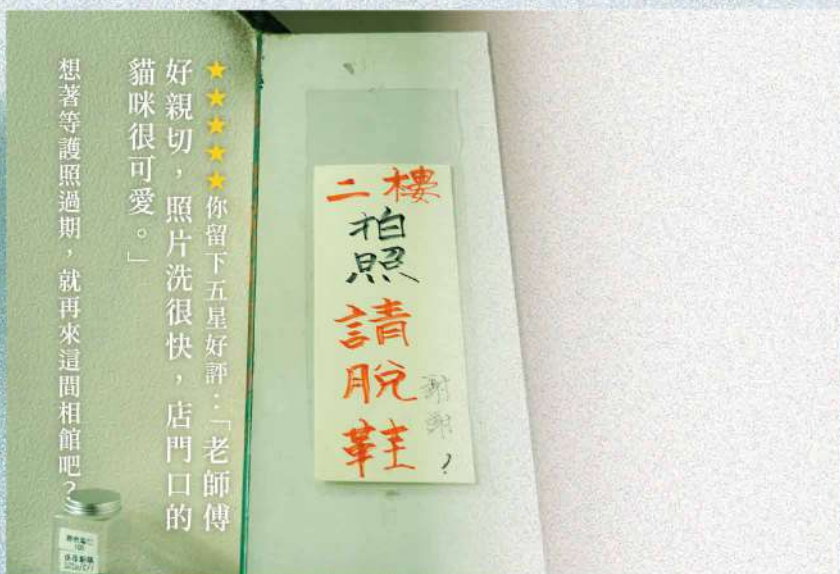 ★★★★★你留下五星好評：「老師傅
好親切，照片洗很快，店門口的
貓咪很可愛。」
想著等護照過期，就再來這間相館吧？
二樓
拍照
請脫鞋
謝謝？